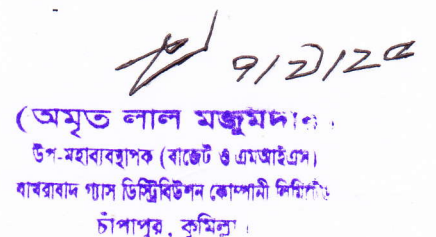 (অমৃত লাল মজুমদার
উপ-মহাব্যবস্থাপক (বাজেট ও এমআইএস)
বাখরাবাদ গ্যাস ডিস্ট্রিবিউশন কোম্পানী লিমিটেড
চাঁপাপুর, কুমিল্লা।